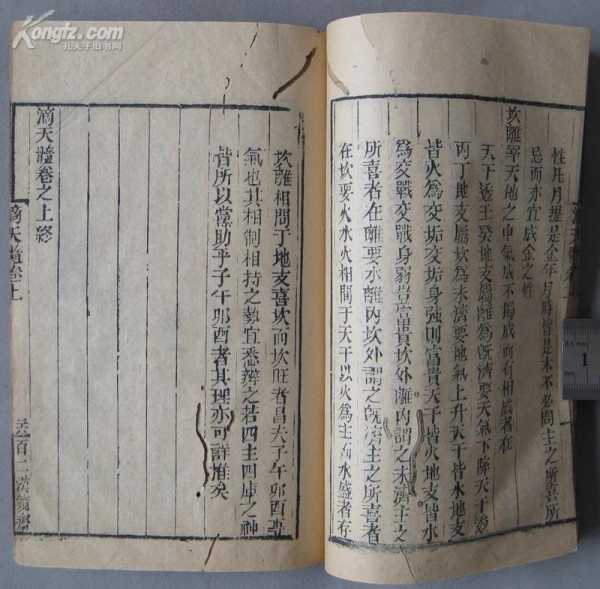 性凡月雖是金年月時皆是木不必問主之所喜所
忌而亦宜成金之性
坎離宰天地之中氣成不獨成而有相成者在
天干透壬癸地支屬離為既濟要天氣下降天干透
丙丁地支屬坎為未濟要地氣上升天干皆水地支
皆火為交垢交垢身強則富貴天干皆火地支皆水
為交戰交戰身弱豈富貴坎外離内謂之未濟主之
所喜者在離要水離内坎外謂之既濟主之所喜者
在坎要火水火相間于天干以火為主而水盛者存
坎離相間于地支喜坎而坎旺者昌夫子午卯酉專
氣也其相制相持之勢宜悉辨之若四生四庫之神
皆所以黨助乎子午卯酉者其理亦可詳推矣
滴天髓卷之上終
滴天髓卷上
百二漢鏡齋
Kongfz.com
孔夫子旧书网
1